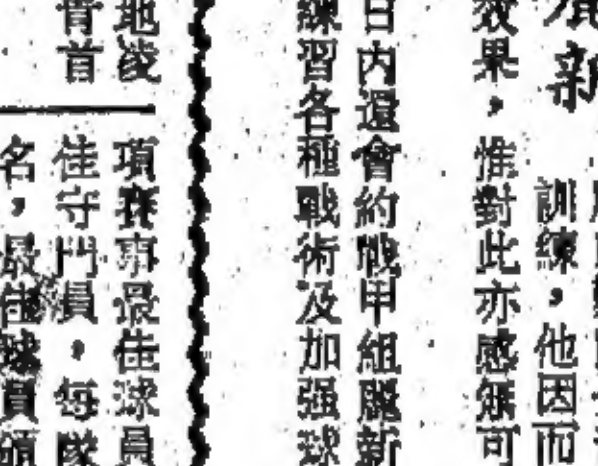 新
訓練，他因而
效果，惟對此亦感無可
日內還會約戰甲組麗新
練習各種戰術及加强球
地凌
首
項賽事最佳球員
佳守門員，每隊
名，最佳球員頒